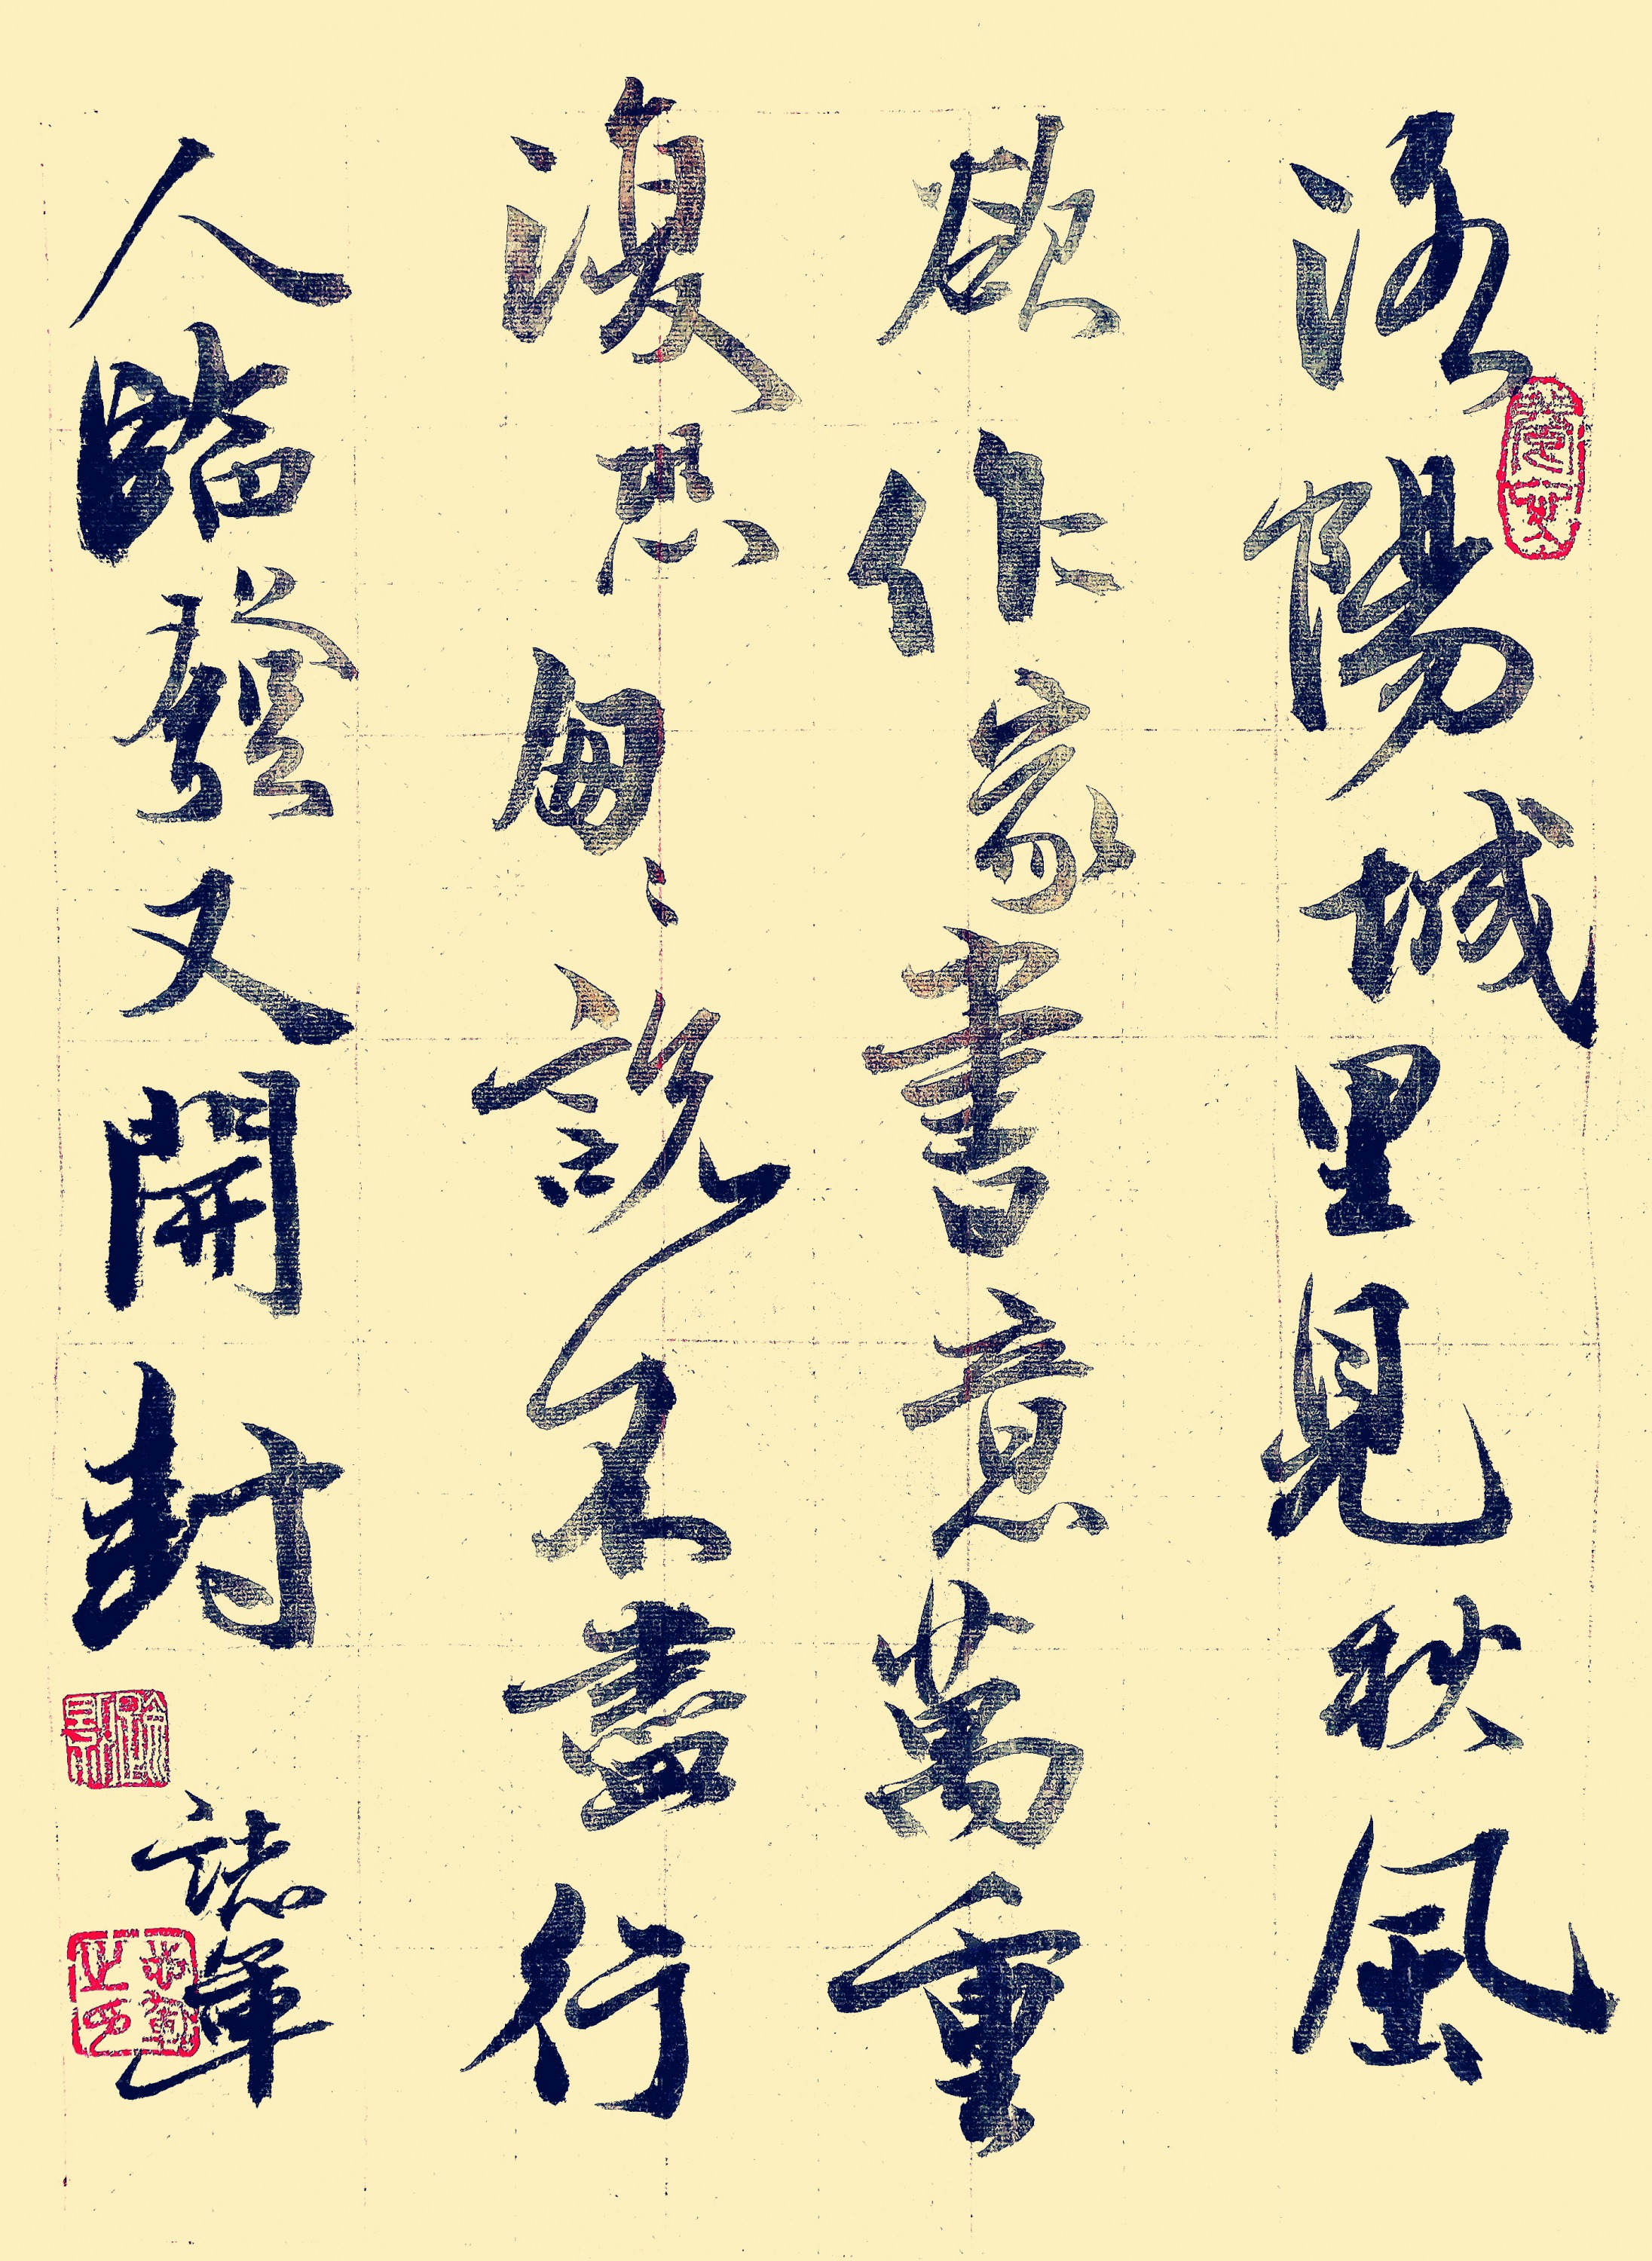 洛陽城里見秋風
欲作家書意萬重
復恐匆〻說不盡行
人臨發又開封
誌軍